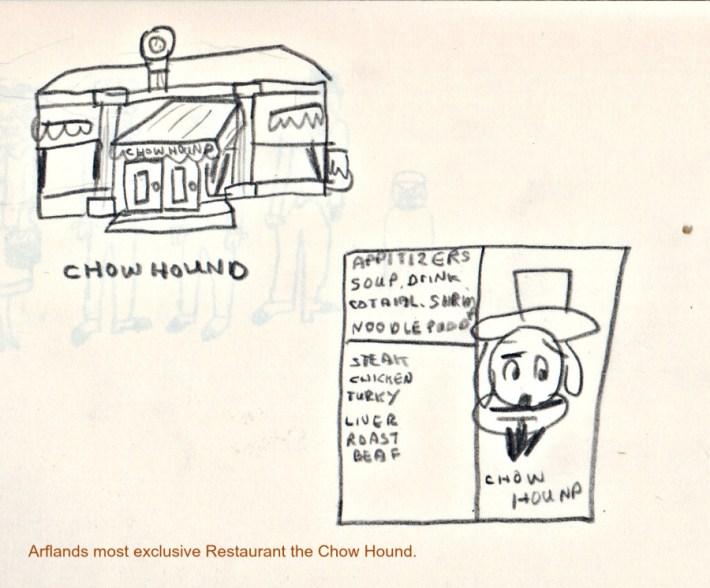 CHOW HOUND
CHOW HOUND
APPITIZERS
SOUP, DRINK
COTAIAL. SHRIM
NOODLE PUDD
STEAK
CHICKEN
TURKY
LIVER
ROAST
BEAF
CHOW
HOUND
Arflands most exclusive Restaurant the Chow Hound.